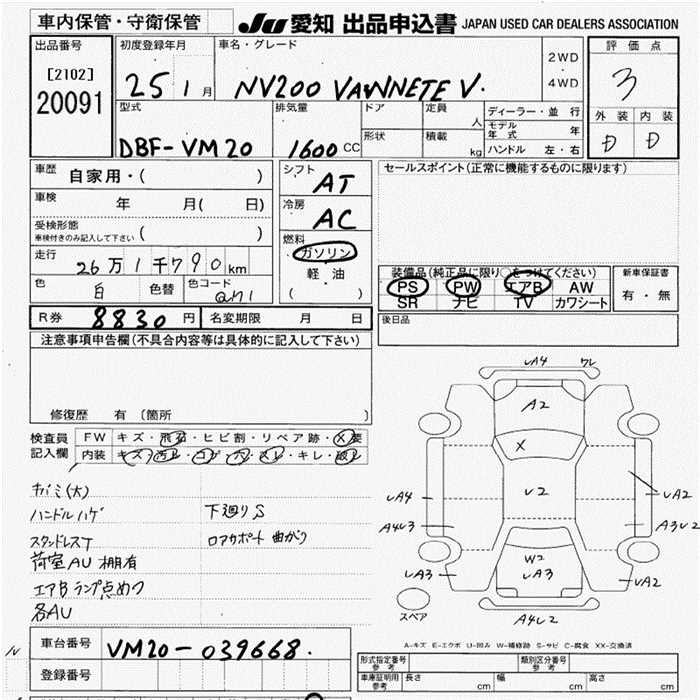 車内保管・守衛保管
JU 愛知 出品申込書 JAPAN USED CAR DEALERS ASSOCIATION
出品番号
[2102]
20091
初度登録年月
25 1 月
車名・グレード
NV200 VAWNETE V.
2WD
・
4WD
評価点
3
外装 内装
D D
型式
DBF-VM20
排気量
1600 CC
ドア
形状
定員 人
積載 kg
ディーラー・並行
モデル年式 年
ハンドル 左・右
車歴 自家用・( )
車検 年 月( 日)
受検形態
車検付きのみ記入して下さい ( )
走行 26万1千790km
色 白 色替 色コード QM1
シフト
AT
冷房
AC
燃料
ガソリン
軽油
( )
セールスポイント(正常に機能するものに限ります)
装備品(純正品に限り○をつけてください)
PS PW エアB AW
SR ナビ TV カワシート
新車保証書
有・無
R券 8830 円 名変期限 月 日
後日品
注意事項申告欄(不具合内容等は具体的に記入して下さい)
修復歴 有 (箇所 )
検査員
記入欄
FW キズ・飛石・ヒビ割・リペア跡・X要
内装 キズ・汚れ・コゲ・穴・スレ・キレ・破レ
キバミ(大)
ハンドルハゲ
スタンドレスT
荷室AU 棚有
エアBランプ点めつ
各AU
下廻りS
ロアサポート曲がり
UA4 ワレ
A2
X
U2
UA4
A4U3
UA3
UA2
A3U2
UA2
W2
UA3
スペア
A4U2
A-キズ E-エクボ U-凹み W-補修跡 S-サビ C-腐食 XX-交換済
車台番号 VM20-039668.
登録番号
形式指定番号
参考
類別区分番号
参考
車庫証明用
参考
長さ cm 幅 cm 高さ cm